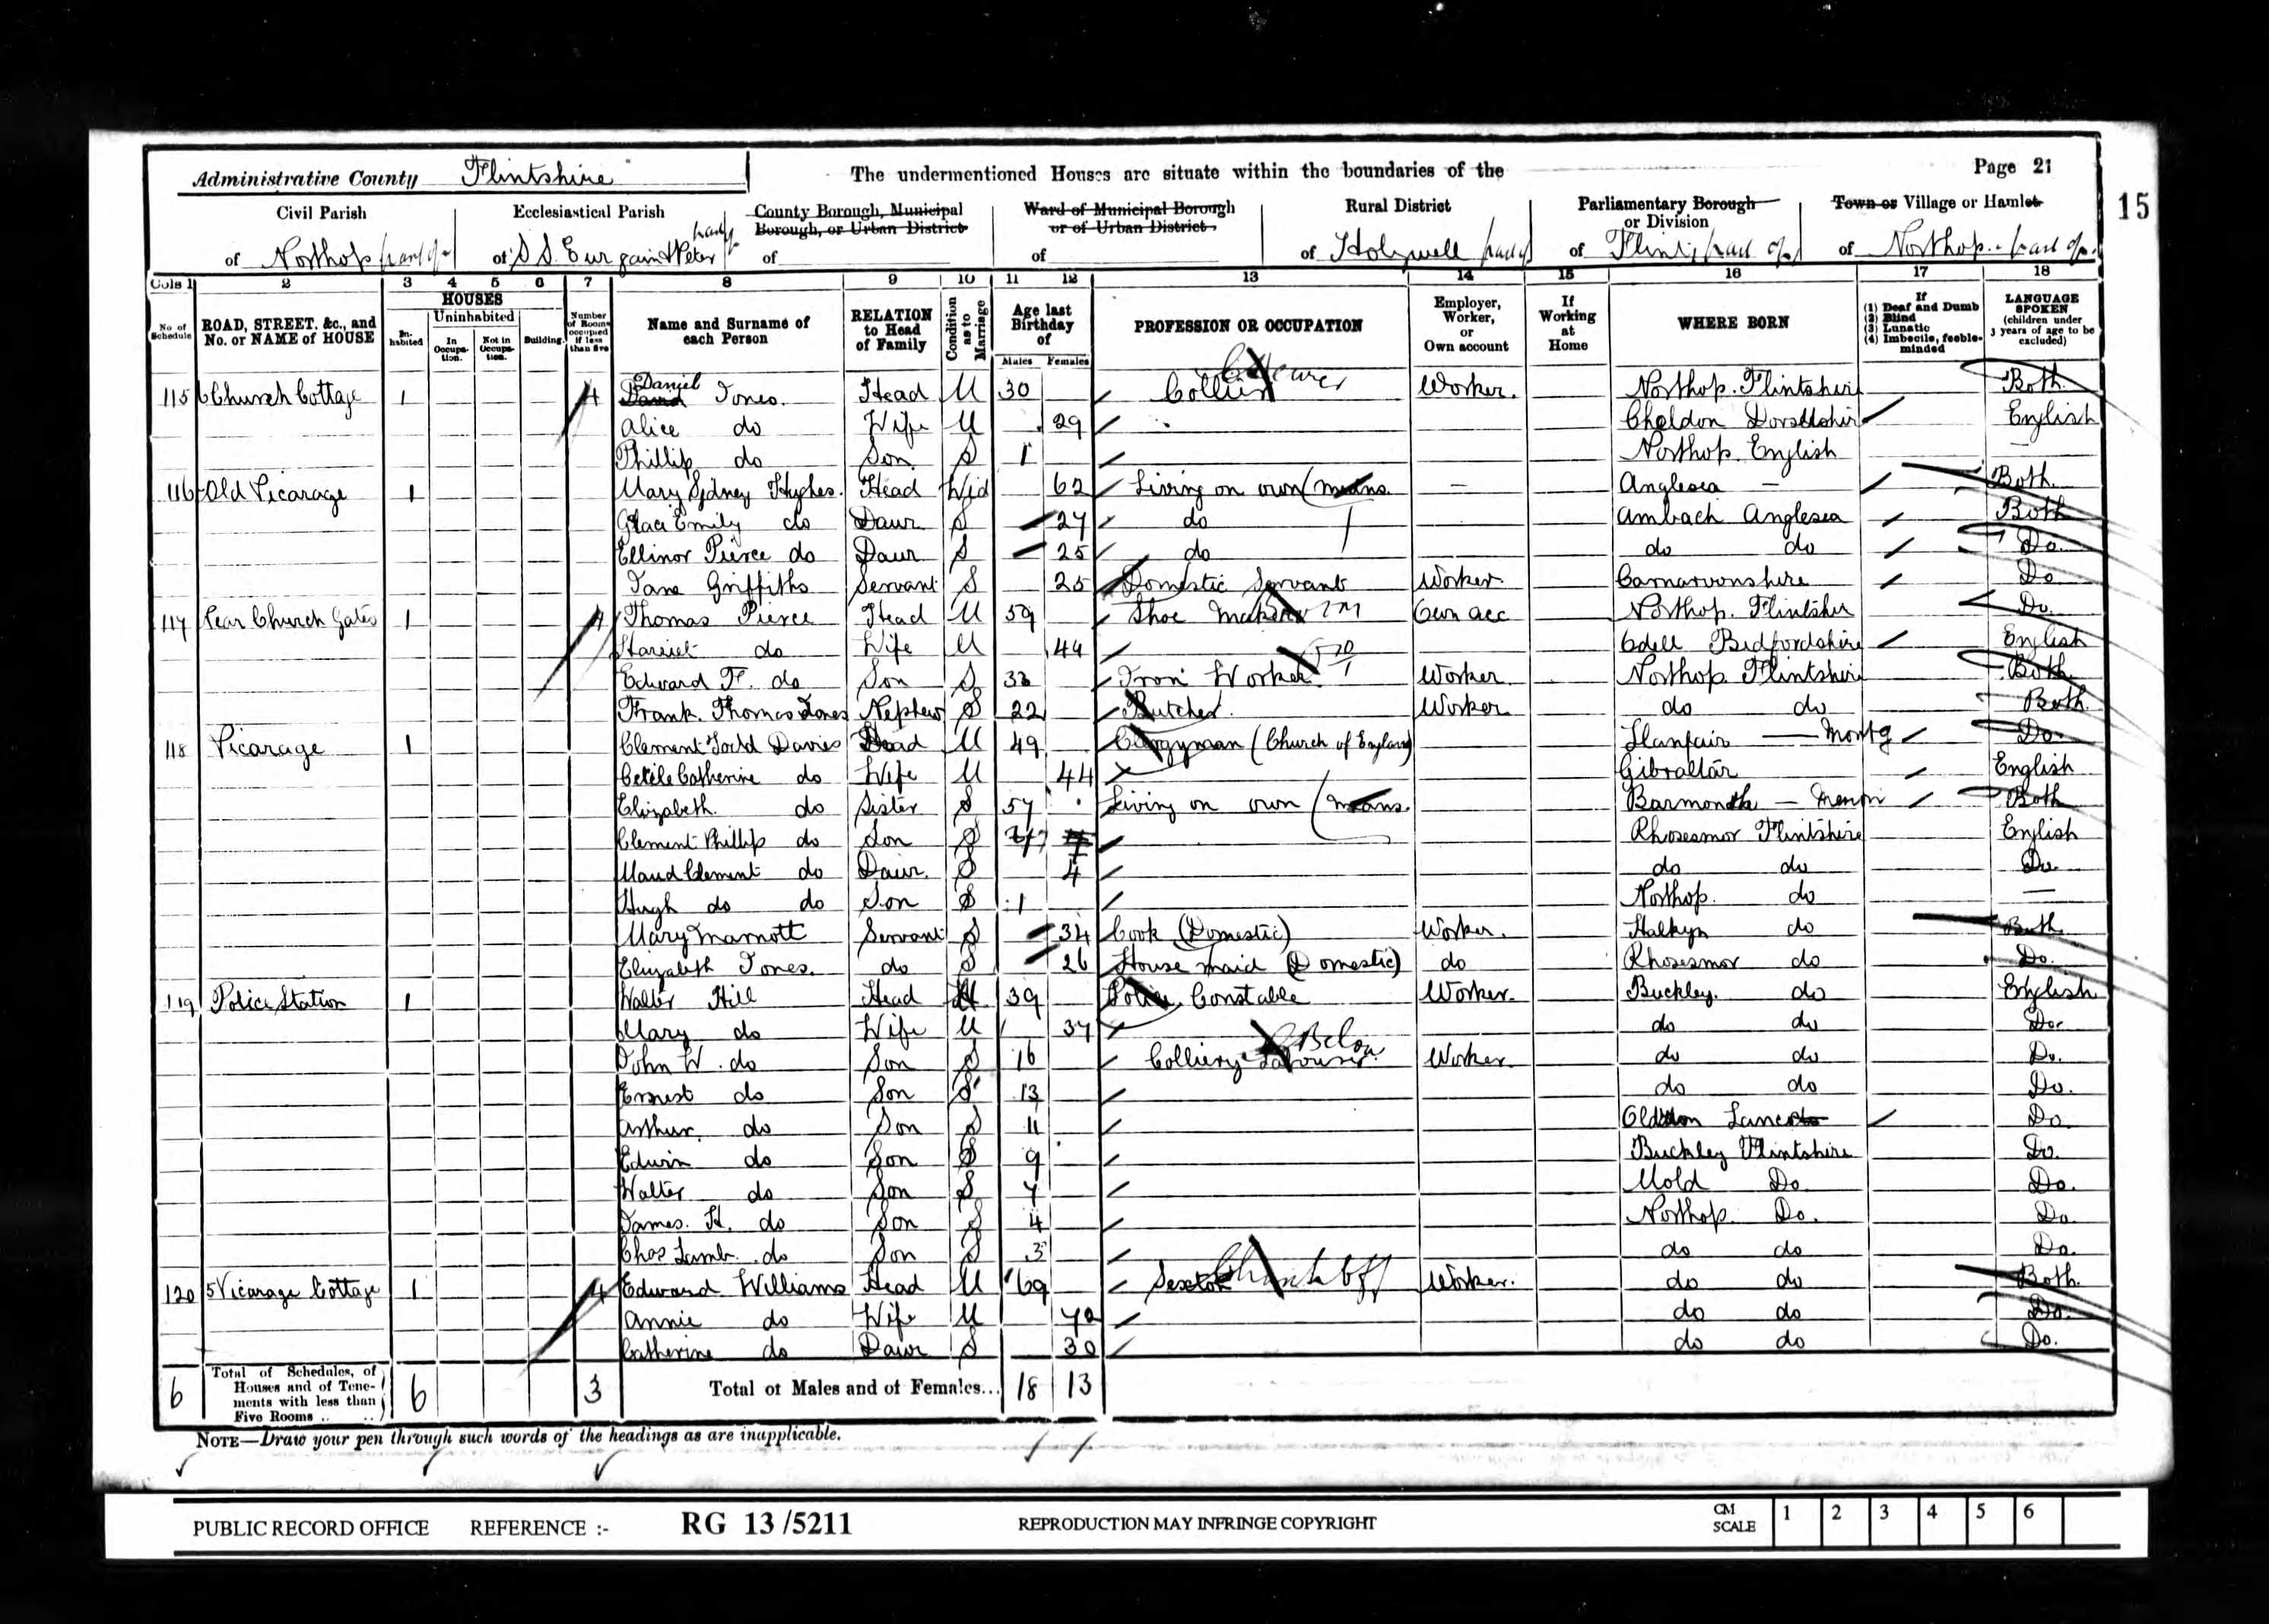 Administrative County Flintshire The undermentioned Houses are situate within the boundaries of the Page 21
15
Civil Parish of Northop part of
Ecclesiastical Parish of S S. Eurgain & Peter part of
County Borough, Municipal Borough, or Urban District of
Ward of Municipal Borough or of Urban District of
Rural District of Holywell part of
Parliamentary Borough or Division of Flint, part of
Town or Village or Hamlet of Northop - part of
Cols 1 2 3 4 5 6 7 8 9 10 11 12 13 14 15 16 17 18
No of Schedule
ROAD, STREET, &c., and No. or NAME of HOUSE
HOUSES
Inhabited
Uninhabited
In Occupation.
Not in Occupation.
Building.
Number of Rooms occupied if less than five
Name and Surname of each Person
RELATION to Head of Family
Condition as to Marriage
Age last Birthday of
Males Females
PROFESSION OR OCCUPATION
Employer, Worker, or Own account
If Working at Home
WHERE BORN
If (1) Deaf and Dumb (2) Blind (3) Lunatic (4) Imbecile, feeble-minded
LANGUAGE SPOKEN (children under 3 years of age to be excluded)
Hewer
Daniel
115 Church Cottage 1 4 David Jones. Head M 30 Collier Worker. Northop. Flintshire Both
Alice do Wife M 29 Cheldon Dorsetshir English
Phillip do Son S 1 Northop English
116 Old Vicarage 1 Mary Sydney Hughes. Head Wid 62 Living on own means. — Anglesea — Both
Emily do Daur S 27 do Ambach Anglesea Both
Ellinor Pierce do Daur S 25 do do do Do.
Jane Griffiths Servant S 25 Domestic Servant Worker Carnarvonshire Do
117 Near Church Gates 1 4 Thomas Pierce Head M 59 Shoe Maker Own acc Northop. Flintshir Do.
Harriet do Wife M 44 Odell Bedfordshire English
Edward F. do Son S 33 Iron Worker Worker Northop Flintshire Both
Frank Thomas Jones Nephew S 22 Butcher. Worker do do Both
118 Vicarage 1 Clement Todd Davies Head M 49 Clergyman (Church of England) Llanfair — Montg Do
Cecile Catherine do Wife M 44 Gibraltar English
Elizabeth. do Sister S 57 Living on own means. Barmouth — Merion Both
Clement Phillip do Son S 7 Rhosesmor Flintshire English
Maud Clement do Daur. S 4 do do Do
Hugh do do Son S 1 Northop. do —
Mary Marriott Servant S 34 Cook (Domestic) Worker. Halkyn do Both
Elizabeth Jones. do S 26 House maid (Domestic) do Rhosesmor do Do.
119 Police Station 1 Walter Hill Head M 39 Police Constable Worker Buckley. do English
Mary do Wife M 37 do do Do
Below
John W. do Son S 16 Colliery Labourer Worker do do Do.
Ernest do Son S 13 do do Do.
Arthur. do Son S 11 Lanc Do
Edwin do Son S 9 Buckley Flintshire Do.
Walter do Son S 7 Mold Do Do.
James. H. do Son S 4 Northop. Do. Do
Chas Lamb. do Son S 3 do do Do.
120 5 Vicarage Cottage 1 4 Edward Williams Head M 69 Sexton Church Off Worker. do do Both.
Annie do Wife M 72 do do Do.
Catherine do Daur S 30 do do Do.
6 Total of Schedules, of Houses and of Tenements with less than Five Rooms .. .. 6 3 Total of Males and of Females... 18 13
NOTE—Draw your pen through such words of the headings as are inapplicable.
PUBLIC RECORD OFFICE REFERENCE :- RG 13 /5211 REPRODUCTION MAY INFRINGE COPYRIGHT CM SCALE 1 2 3 4 5 6